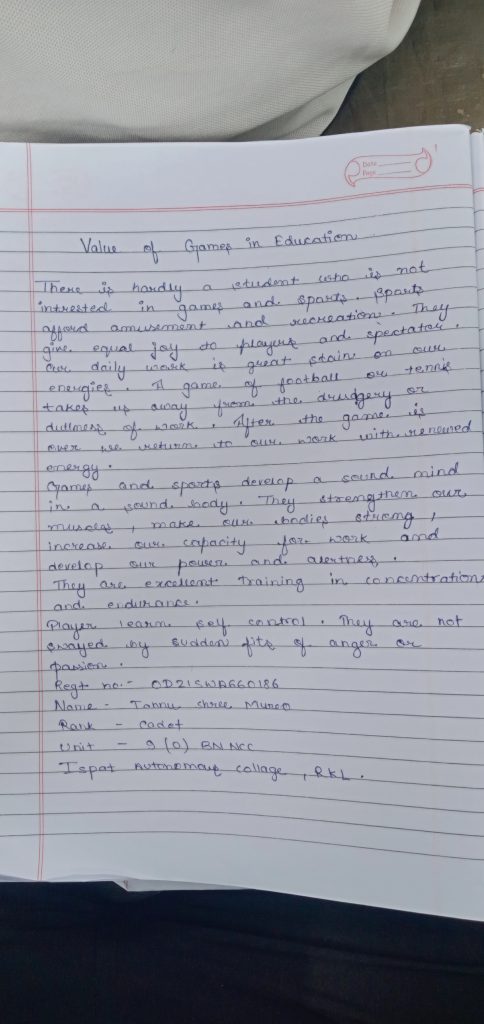 Date
Page
Value of Games in Education
There is hardly a student who is not
intrested in games and sports. Sports
afford amusement and recreation. They
give equal joy to players and spectator.
Our daily work is great stain on our
energies. A game of football or tennis
takes us away from the drudgery or
dullness of work. After the game is
over we return to our work with renewed
energy.
Games and sports develop a sound mind
in a sound body. They strengthen our
muscles, make our bodies strong,
increase our capacity for work and
develop our power and alertness.
They are excellent training in concentration
and endurance.
Player learn self control. They are not
swayed by sudden fits of anger or
passion.
Regt no.- OD21SWA660186
Name - Tannu shree Munda
Rank - Cadet
Unit - 9 (O) BN NCC
Ispat Autonomous collage, RKL.